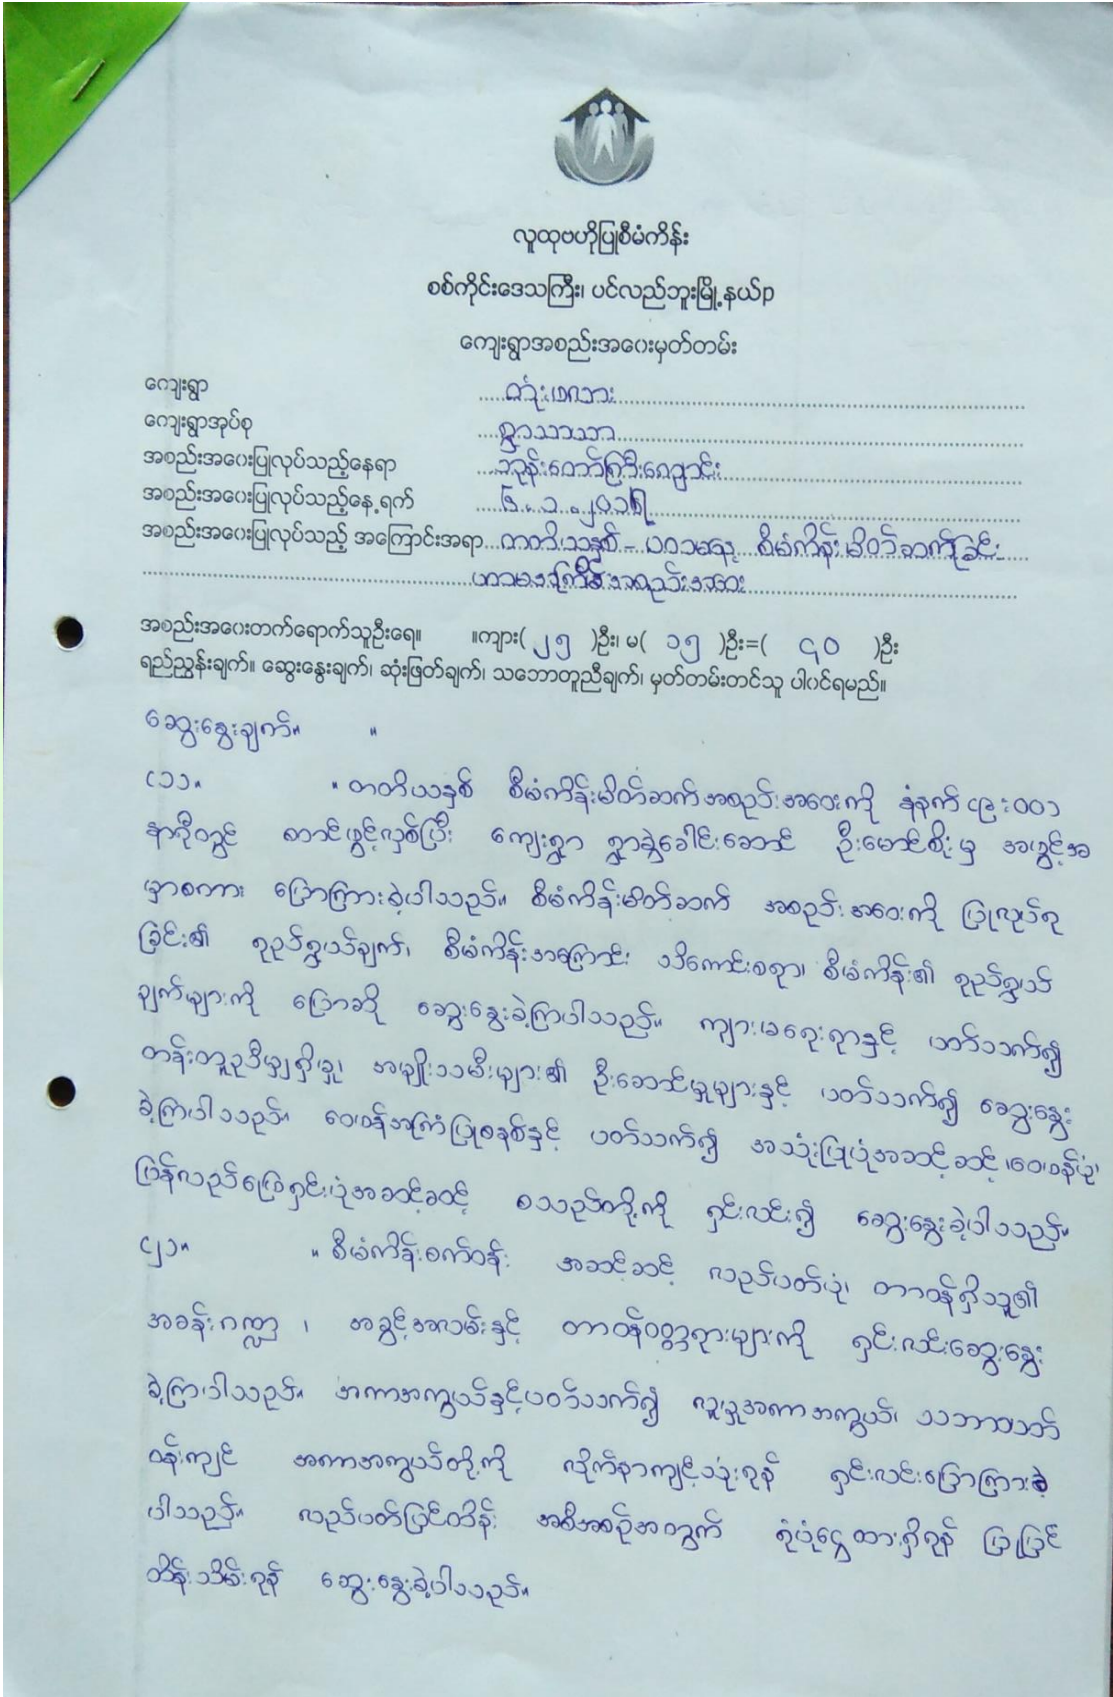 လူထုဗဟိုပြုစီမံကိန်း
စစ်ကိုင်းဒေသကြီး၊ ပင်လည်ဘူးမြို့နယ်
ကျေးရွာအစည်းအဝေးမှတ်တမ်း
ကျေးရွာ
ကျေးရွာအုပ်စု ရွာသာယာ
အစည်းအဝေးပြုလုပ်သည့်နေရာ ဘုန်းတော်ကြီးကျောင်း
အစည်းအဝေးပြုလုပ်သည့်နေ့ရက် ၆.၁.၂၀၁၆
အစည်းအဝေးပြုလုပ်သည့် အကြောင်းအရာ တတိယနှစ် - ပထမနေ့ စီမံကိန်းမိတ်ဆက်ခြင်း
ပထမအကြိမ် အစည်းအဝေး
အစည်းအဝေးတက်ရောက်သူဦးရေ။ ။ကျား( ၂၅ )ဦး၊ မ( ၁၅ )ဦး=( ၄၀ )ဦး
ရည်ညွှန်းချက်။ ဆွေးနွေးချက်၊ ဆုံးဖြတ်ချက်၊ သဘောတူညီချက်၊ မှတ်တမ်းတင်သူ ပါဝင်ရမည်။
ဆွေးနွေးချက်။ ။
(၁)။ ။ တတိယနှစ် စီမံကိန်းမိတ်ဆက်အစည်းအဝေးကို နံနက် (၉:၀၀)
နာရီတွင် စတင်ဖွင့်လှစ်ပြီး ကျေးရွာ ရွာခွဲခေါင်းဆောင် ဦးမောင်စိုးမှ အဖွင့်အ
မှာစကား ပြောကြားခဲ့ပါသည်။ စီမံကိန်းမိတ်ဆက် အစည်းအဝေးကို ပြုလုပ်ရ
ခြင်း၏ ရည်ရွယ်ချက်၊ စီမံကိန်းအကြောင်း သိကောင်းစရာ၊ စီမံကိန်း၏ ရည်ရွယ်
ချက်များကို ပြောဆို ဆွေးနွေးခဲ့ကြပါသည်။ ကျား၊မရေးရာနှင့် ပတ်သက်၍
တန်းတူညီမျှရှိမှု၊ အမျိုးသမီးများ၏ ဦးဆောင်မှုများနှင့် ပတ်သက်၍ ဆွေးနွေး
ခဲ့ကြပါသည်။ ဝေဖန်အကြံပြုစနစ်နှင့် ပတ်သက်၍ အသုံးပြုပုံအဆင့်ဆင့်၊ ဝေဖန်ပုံ၊
ပြန်လည်ဖြေရှင်းပုံအဆင့်ဆင့် စသည်တို့ကို ရှင်းလင်း၍ ဆွေးနွေးခဲ့ပါသည်။
(၂)။ ။ စီမံကိန်းစက်ဝန်း အဆင့်ဆင့် လည်ပတ်ပုံ၊ တာဝန်ရှိသူ၏
အခန်းကဏ္ဍ ၊ အခွင့်အလမ်းနှင့် တာဝန်ဝတ္တရားများကို ရှင်းလင်းဆွေးနွေး
ခဲ့ကြပါသည်။ အကာအကွယ်နှင့်ပတ်သက်၍ လူမှုအကာအကွယ်၊ သဘာဝပတ်
ဝန်းကျင် အကာအကွယ်တို့ကို လိုက်နာကျင့်သုံးရန် ရှင်းလင်းပြောကြားခဲ့
ပါသည်။ လည်ပတ်ပြင်ထိန်း အစီအစဉ်အတွက် ရံပုံငွေထားရှိရန် ပြုပြင်
ထိန်းသိမ်းရန် ဆွေးနွေးခဲ့ပါသည်။